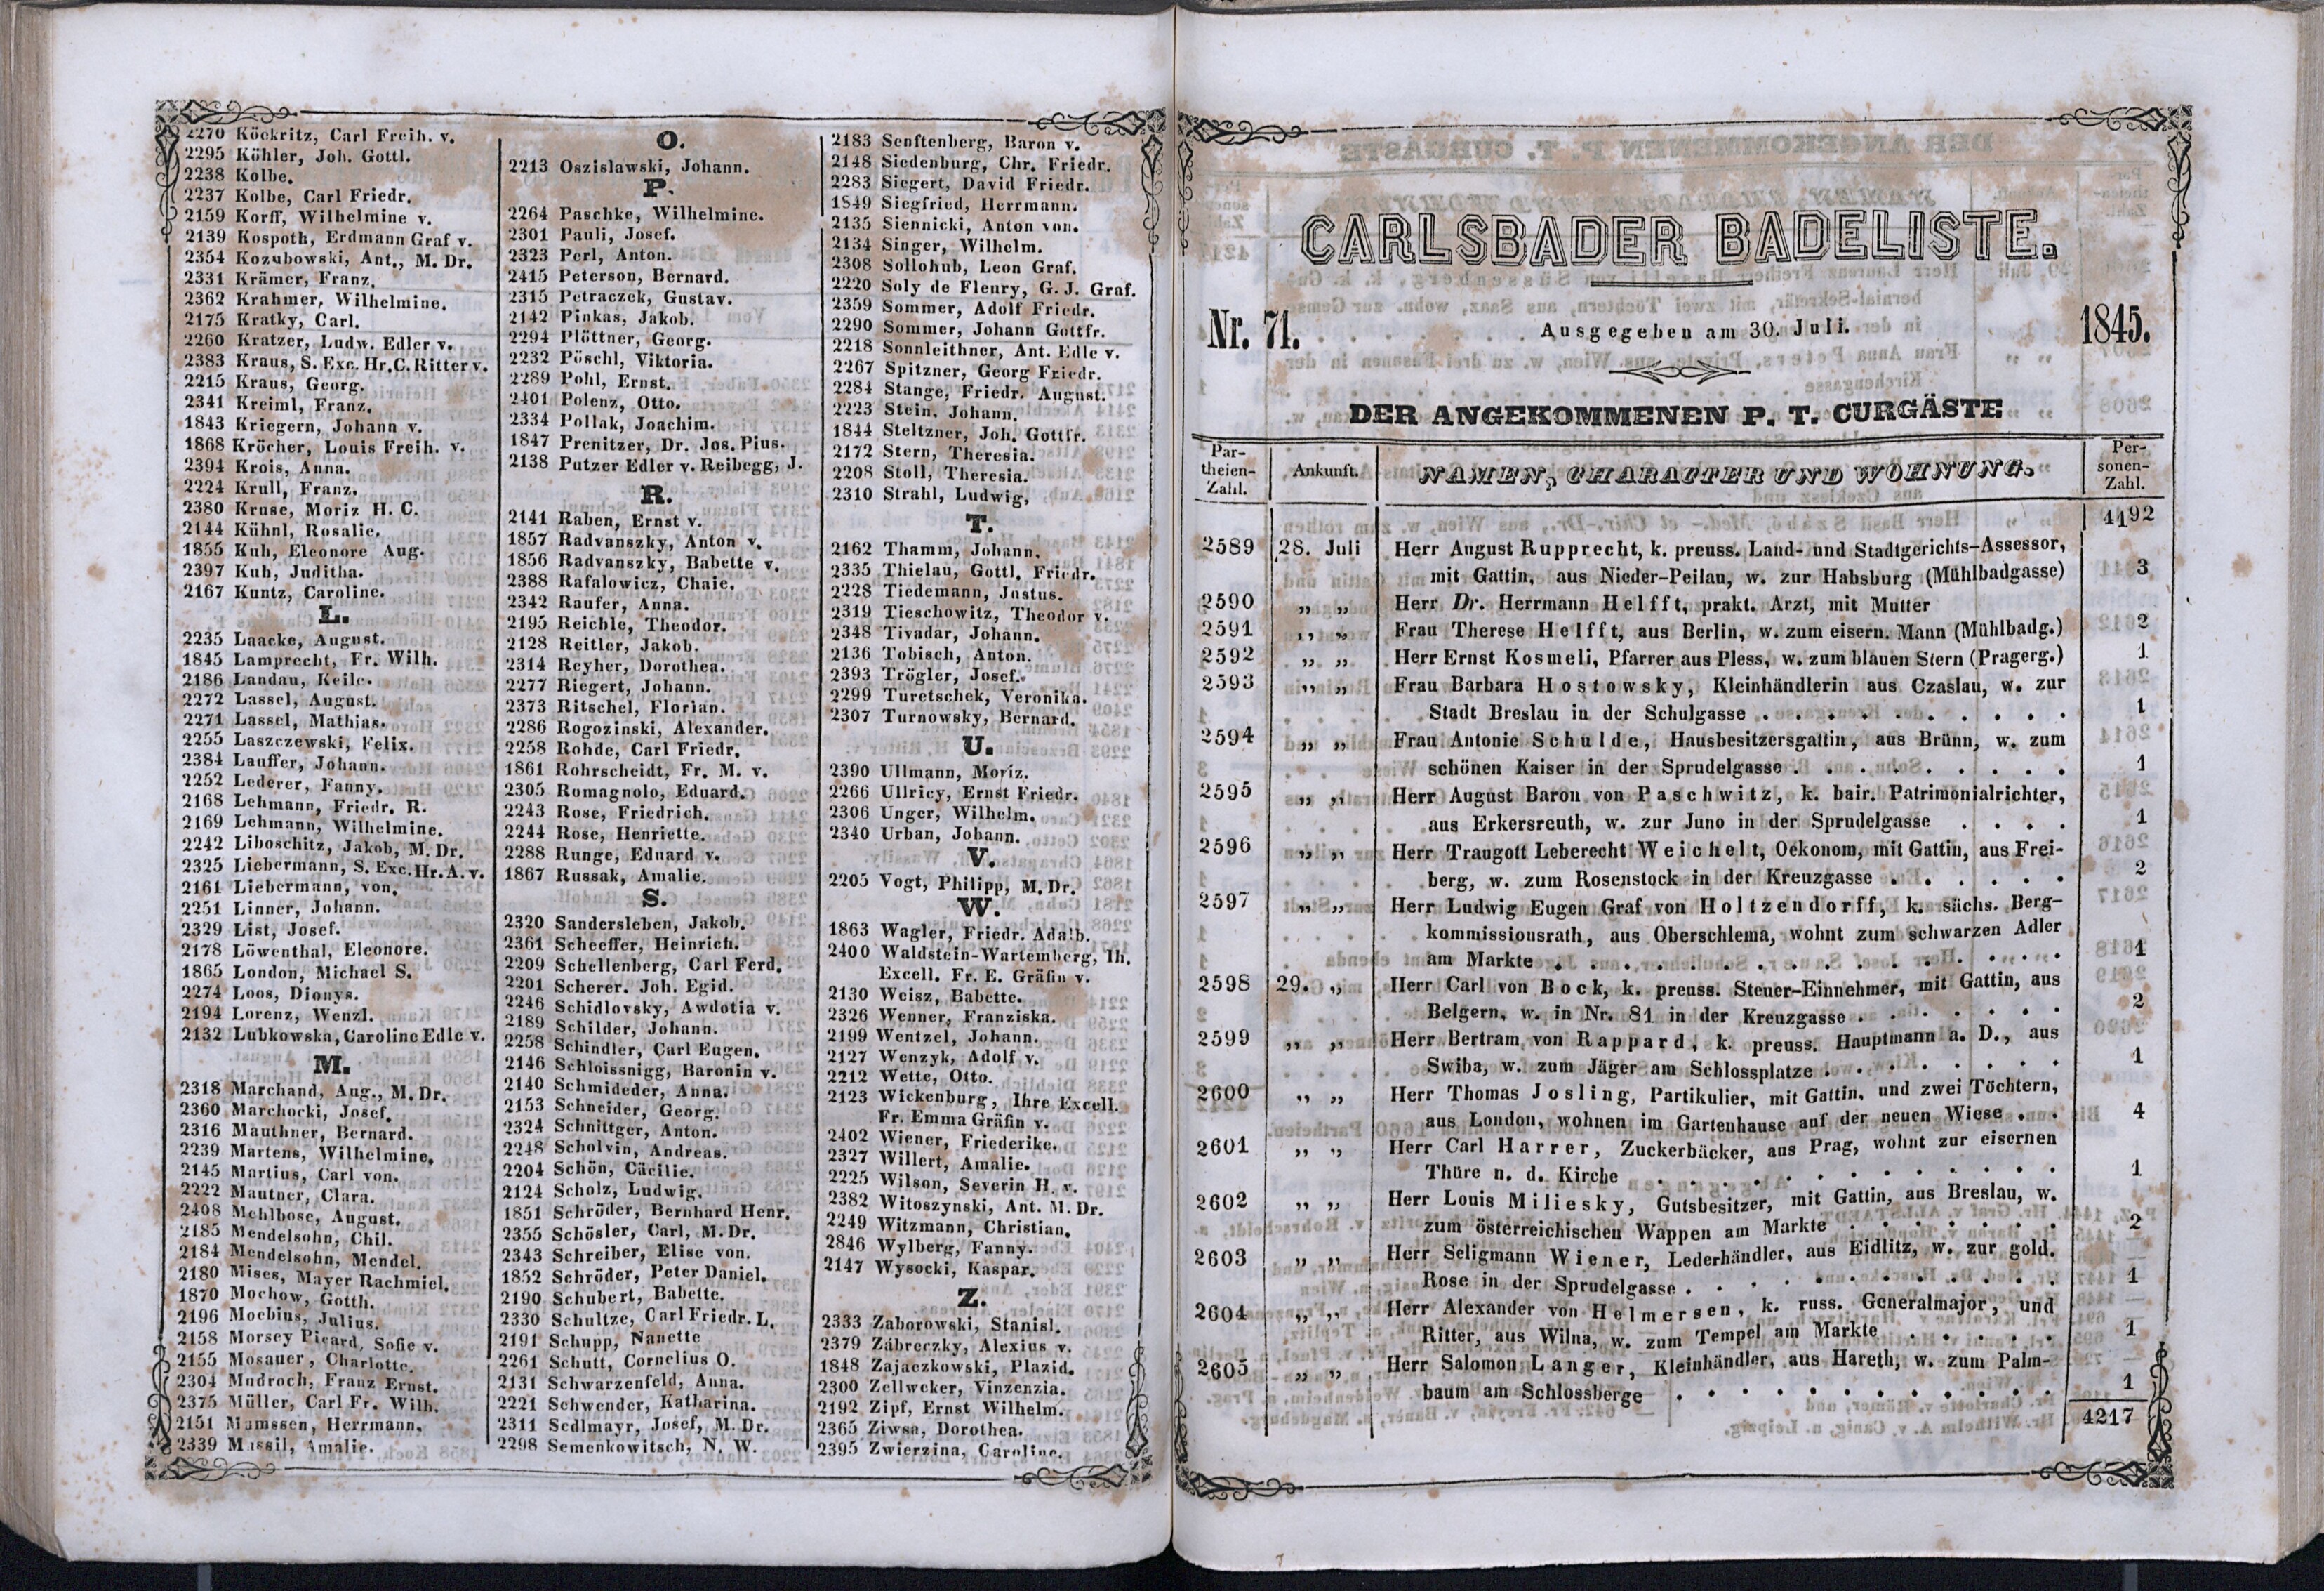 2270 Köckritz, Carl Freih. v.
2295 Köhler, Joh. Gottl.
2238 Kolbe.
2237 Kolbe, Carl Friedr.
2159 Korff, Wilhelmine v.
2139 Kospoth, Erdmann Graf v.
2354 Kozubowski, Ant., M. Dr.
2331 Krämer, Franz.
2362 Krahmer, Wilhelmine.
2175 Kratky, Carl.
2260 Kratzer, Ludw. Edler v.
2383 Kraus, S. Exc. Hr. C. Ritter v.
2215 Kraus, Georg.
2341 Kreiml, Franz.
1843 Kriegern, Johann v.
1868 Kröcher, Louis Freih. v.
2394 Krois, Anna.
2224 Krull, Franz.
2380 Kruse, Moriz H. C.
2144 Kühnl, Rosalie.
1855 Kuh, Eleonore Aug.
2397 Kuh, Juditha.
2167 Kuntz, Caroline.
L.
2235 Laacke, August.
1845 Lamprecht, Fr. Wilh.
2186 Landau, Keile.
2272 Lassel, August.
2271 Lassel, Mathias.
2255 Laszczewski, Felix.
2384 Lauffer, Johann.
2252 Lederer, Fanny.
2168 Lehmann, Friedr. R.
2169 Lehmann, Wilhelmine.
2242 Liboschitz, Jakob, M. Dr.
2325 Liebermann, S. Exc. Hr. A. v.
2161 Liebermann, von.
2251 Linner, Johann.
2329 List, Josef.
2178 Löwenthal, Eleonore.
1865 London, Michael S.
2274 Loos, Dionys.
2194 Lorenz, Wenzl.
2132 Lubkowska, Caroline Edle v.
M.
2318 Marchand, Aug., M. Dr.
2360 Marchocki, Josef.
2316 Mauthner, Bernard.
2239 Martens, Wilhelmine.
2145 Martius, Carl von.
2222 Mautner, Clara.
2408 Mehlhose, August.
2185 Mendelsohn, Chil.
2184 Mendelsohn, Mendel.
2180 Mises, Mayer Rachmiel.
1870 Mochow, Gotth.
2196 Moebius, Julius.
2158 Morsey Picard, Sofie v.
2155 Mosauer, Charlotte.
2304 Mudroch, Franz Ernst.
2375 Müller, Carl Fr. Wilh.
2151 Mumssen, Herrmann.
2339 Mussil, Amalie.
O.
2213 Oszislawski, Johann.
P.
2264 Paschke, Wilhelmine.
2301 Pauli, Josef.
2323 Perl, Anton.
2415 Peterson, Bernard.
2315 Petraczek, Gustav.
2142 Pinkas, Jakob.
2294 Plöttner, Georg.
2232 Pöschl, Viktoria.
2289 Pohl, Ernst.
2401 Polenz, Otto.
2334 Pollak, Joachim.
1847 Prenitzer, Dr. Jos. Pius.
2138 Putzer Edler v. Reibegg, J.
R.
2141 Raben, Ernst v.
1857 Radvanszky, Anton v.
1856 Radvanszky, Babette v.
2388 Rafalowicz, Chaie.
2342 Raufer, Anna.
2195 Reichle, Theodor.
2128 Reitler, Jakob.
2314 Reyher, Dorothea.
2277 Riegert, Johann.
2373 Ritschel, Florian.
2286 Rogozinski, Alexander.
2258 Rohde, Carl Friedr.
1861 Rohrscheidt, Fr. M. v.
2305 Romagnolo, Eduard.
2243 Rose, Friedrich.
2244 Rose, Henriette.
2288 Runge, Eduard v.
1867 Russak, Amalie.
S.
2320 Sandersleben, Jakob.
2361 Scheeffer, Heinrich.
2209 Schellenberg, Carl Ferd.
2201 Scherer. Joh. Egid.
2246 Schidlovsky, Awdotia v.
2189 Schilder, Johann.
2258 Schindler, Carl Eugen.
2146 Schloissnigg, Baronin v.
2140 Schmideder, Anna.
2153 Schneider, Georg.
2324 Schnittger, Anton.
2248 Scholvin, Andreas.
2204 Schön, Cäcilie.
2124 Scholz, Ludwig.
1851 Schröder, Bernhard Henr.
2355 Schösler, Carl, M. Dr.
2343 Schreiber, Elise von.
1852 Schröder, Peter Daniel.
2190 Schubert, Babette.
2330 Schultze, Carl Friedr. L.
2191 Schupp, Nanette
2261 Schutt, Cornelius O.
2131 Schwarzenfeld, Anna.
2221 Schwender, Katharina.
2311 Sedlmayr, Josef, M. Dr.
2298 Semenkowitsch, N. W.
2183 Senftenberg, Baron v.
2148 Siedenburg, Chr. Friedr.
2283 Siegert, David Friedr.
1849 Siegfried, Herrmann.
2135 Siennicki, Anton von.
2134 Singer, Wilhelm.
2308 Sollohub, Leon Graf.
2220 Soly de Fleury, G. J. Graf.
2359 Sommer, Adolf Friedr.
2290 Sommer, Johann Gottfr.
2218 Sonnleithner, Ant. Edle v.
2267 Spitzner, Georg Friedr.
2284 Stange, Friedr. August.
2223 Stein, Johann.
1844 Steltzner, Joh. Gottfr.
2172 Stern, Theresia.
2208 Stoll, Theresia.
2310 Strahl, Ludwig,
T.
2162 Thamm, Johann.
2335 Thielau, Gottl. Friedr.
2228 Tiedemann, Justus.
2319 Tieschowitz, Theodor v.
2348 Tivadar, Johann.
2136 Tobisch, Anton.
2393 Trögler, Josef.
2299 Turetschek, Veronika.
2307 Turnowsky, Bernard.
U.
2390 Ullmann, Moriz.
2266 Ullricy, Ernst Friedr.
2306 Unger, Wilhelm.
2340 Urban, Johann.
V.
2205 Vogt, Philipp, M. Dr.
W.
1863 Wagler, Friedr. Adalb.
2400 Waldstein-Wartemberg, Ih.
Excell. Fr. E. Gräfin v.
2130 Weisz, Babette.
2326 Wenner, Franziska.
2199 Wentzel, Johann.
2127 Wenzyk, Adolf v.
2212 Wette, Otto.
2123 Wickenburg, Ihre Excell.
Fr. Emma Gräfin v.
2402 Wiener, Friederike.
2327 Willert, Amalie.
2225 Wilson, Severin H. v.
2382 Witoszynski, Ant. M. Dr.
2249 Witzmann, Christian.
2846 Wylberg, Fanny.
2147 Wysocki, Kaspar.
Z.
2333 Zaborowski, Stanisl.
2379 Zábreczky, Alexius v.
1848 Zajaczkowski, Plazid.
2300 Zellweker, Vinzenzia.
2192 Zipf, Ernst Wilhelm.
2365 Ziwsa, Dorothea.
2395 Zwierzina, Caroline.
CARLSBADER BADELISTE.
Nr. 71. Ausgegeben am 30. Juli. 1845.
DER ANGEKOMMENEN P. T. CURGÄSTE
Par-theien-Zahl. Ankunft. NAMEN, CHARACTER UND WOHNUNG. Per-sonen-Zahl.
4192
2589 28. Juli Herr August Rupprecht, k. preuss. Land- und Stadtgerichts-Assessor,
mit Gattin, aus Nieder-Peilau, w. zur Habsburg (Mühlbadgasse) 3
2590 „ „ Herr Dr. Herrmann Helfft, prakt. Arzt, mit Mutter
2591 „ „ Frau Therese Helfft, aus Berlin, w. zum eisern. Mann (Mühlbadg.) 2
2592 „ „ Herr Ernst Kosmeli, Pfarrer aus Pless, w. zum blauen Stern (Pragerg.) 1
2593 „ „ Frau Barbara Hostowsky, Kleinhändlerin aus Czaslau, w. zur
Stadt Breslau in der Schulgasse . . . . . . . . . . 1
2594 „ „ Frau Antonie Schulde, Hausbesitzersgattin, aus Brünn, w. zum
schönen Kaiser in der Sprudelgasse . . . . . . . . . 1
2595 „ „ Herr August Baron von Paschwitz, k. bair. Patrimonialrichter,
aus Erkersreuth, w. zur Juno in der Sprudelgasse . . . . 1
2596 „ „ Herr Traugott Leberecht Weichelt, Oekonom, mit Gattin, aus Frei-
berg, w. zum Rosenstock in der Kreuzgasse . . . . . . 2
2597 „ „ Herr Ludwig Eugen Graf von Holtzendorff, k. sächs. Berg-
kommissionsrath, aus Oberschlema, wohnt zum schwarzen Adler
am Markte . . . . . . . . . . . . . . . 1
2598 29. „ Herr Carl von Bock, k. preuss. Steuer-Einnehmer, mit Gattin, aus
Belgern, w. in Nr. 81 in der Kreuzgasse . . . . . . . 2
2599 „ „ Herr Bertram von Rappard, k. preuss. Hauptmann a. D., aus
Swiba, w. zum Jäger am Schlossplatze . . . . . . . . 1
2600 „ „ Herr Thomas Josling, Partikulier, mit Gattin, und zwei Töchtern,
aus London, wohnen im Gartenhause auf der neuen Wiese . . 4
2601 „ „ Herr Carl Harrer, Zuckerbäcker, aus Prag, wohnt zur eisernen
Thüre n. d. Kirche . . . . . . . . . . . . 1
2602 „ „ Herr Louis Miliesky, Gutsbesitzer, mit Gattin, aus Breslau, w.
zum österreichischen Wappen am Markte . . . . . . . 2
2603 „ „ Herr Seligmann Wiener, Lederhändler, aus Eidlitz, w. zur gold.
Rose in der Sprudelgasse . . . . . . . . . . . 1
2604 „ „ Herr Alexander von Helmersen, k. russ. Generalmajor, und
Ritter, aus Wilna, w. zum Tempel am Markte . . . . . 1
2605 „ „ Herr Salomon Langer, Kleinhändler, aus Hareth, w. zum Palm-
baum am Schlossberge . . . . . . . . . . . . 1
4217